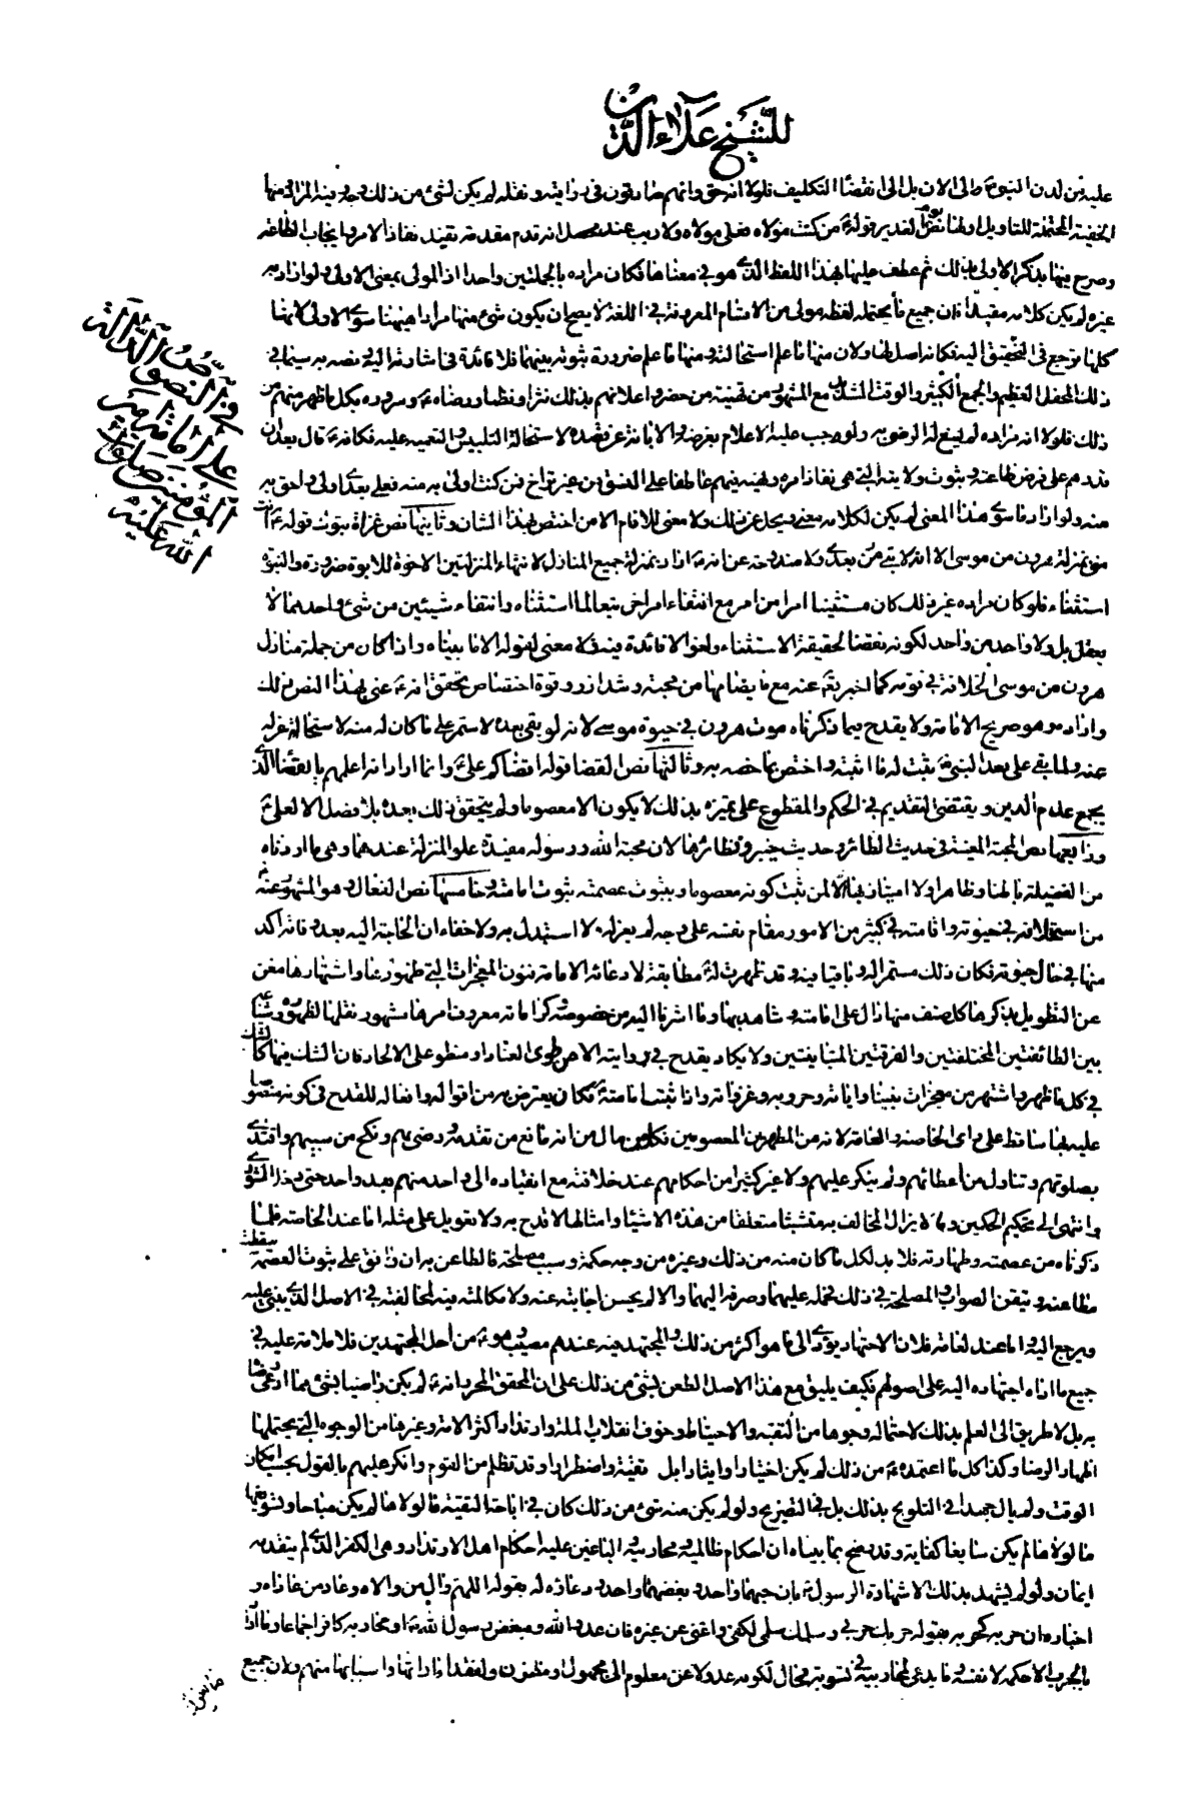 للشيخ علاء الدين
عليه من لدن النبي ص والى الان بل الى انقضاء التكليف فلولا انه حق وانهم صادقون في روايته ونقله لم يكن لشئ من ذلك وجه
الخفية المحتملة للتاويل اولها نص يوم الغدير قوله ع من كنت مولاه فعلي مولاه ولا ريب عند محصل انه قدم مقدمة تفيد نفاذ الامر وايجاب الطاعة
وصرح فيها بذكر الاولى بذلك ثم عطف عليها بهذا اللفظ الذي هو في معناها فكان مراده بالجملتين واحدا اذ المولى بمعنى الاولى ولو اراد به
غيره لم يكن كلامه مفيدا فان جميع ما يحتمله لفظه مولى من الاقسام المعروفة في اللغة لا يصح ان يكون شئ منها مرادا هيهنا سوى الاولى لانها
كلها ترجع في التحقيق اليه فكانه اصل لها ولان منها ما علم استحالته ومنها ما علم ضرورة ثبوته بينهما فلا فائدة في اشارته اليه ونصه به سيما في
ذلك المحفل العظيم والجمع الكثير والوقت مع المشهور من تهنية من حضر واعلانهم بذلك نثرا ونظما ورضاه ع وسروره بكل ما ظهر منهم من
ذلك فلولا انه مراده لم يسغ له الرضى به ولوجب عليه الاعلام بغرضه والابانة عن قصده لاستحالة التلبيس والتعمية عليه فكانه ع قال بعد ان
قدم فرض طاعته وثبوت ولايته التي هي نفاذ امره ونهيه فيهم عاطفا على النسق من غير تراخ فمن كنت اولى به منه فعلي بعدي اولى واحق به
منه ولو اراد ما سوى هذا المعنى لم يكن لكلامه معنى ويجل عن ذلك ولا معنى للامام الا من اختص بهذا الشان وثانيها نص غزاة تبوك قوله ع انت
مني بمنزلة هرون من موسى الا انه لا نبي من بعدي ولا مندوحة عن انه ع اراد بمنزلة جميع المنازل لانتهاء المنزلتين الاخوة للابوة ضرورة والنبوة
استثناء فلو كان مراده غير ذلك كان مستثنيا امرا من امر مع انتفاء امر اخر متعالما استثناه وانتفاء شيئين من شئ واحد مما لا
يعقل بل ولا واحد من واحد لكونه نقضا لحقيقة الاستثناء ولغوا لا فائدة فيه فلا معنى لقوله الا ما بيناه واذا كان من جملة منازل
هرون من موسى الخلافة في قومه كما اخبر تعالى عنه مع ما يضامها من محبة وشد ازر وقوة اختصاص تحقق انه ع عنى بهذا النص ذلك
واراده وهو صريح الامامة ولا يقدح فيما ذكرناه موت هرون في حيوة موسى لانه لو بقي بعده لاستمر على ما كان له منه لاستحالة عزله
عنه ولما بقي علي بعد النبي ص ثبت له ما اثبته واختص بما خصه به وثالثها نص القضا قوله اقضاكم علي ع وانما اراد انه اعلمهم بالقضا الذي
يجمع علوم الدين ويقتضي التقديم في الحكم والمقطوع على تميزه بذلك لا يكون الا معصوما ولم يتحقق ذلك بعده بلا فصل الا لعلي ع
ورابعها نص المحبة المعينة في حديث الطائر وحديث خيبر ونظائرها لان محبة الله ورسوله مفيدة علو المنزلة عندهما وهي ما اردناه
من الفضيلة باطنا وظاهرا ولا امتياز بها الا لمن ثبت كونه معصوما وبثبوت عصمته ثبوت امامته وخامسها نص الفعال وهو المشهور عنه ع
من استخلافه في حيوته واقامته في كثير من الامور مقام نفسه على وجه لم يعزله ولا استبدل به ولا خفاء ان الحاجة اليه بعد وفاته اكد
منها في حال حيوته فكان ذلك مستمرا له وباقيا فيه وقد ظهرت له ع مطابقة لادعائه الامامة فنون المعجزات التي ظهورها واشتهارها مغن
عن التطويل بذكرها كل صنف منها دال على امامته وشاهد بها وما اشرنا اليه من خصوصيته وكراماته معروف امرها مشهور نقلها لظهوره
بين الطائفتين المختلفتين والفرقتين المتباينتين ولا يكاد يقدح في روايته الا من طوى العناد او منطو على الالحاد فان الشك فيها كالشك
في كل ما ظهر واشتهر من معجزات نبينا واياته وحروبه وغزواته واذا ثبتت امامته ع فكان يعترض به من اقواله وافعاله للقدح في كونه منصوصا
عليه بها ساقط على راى الخاصة والعامة لانه من المطهرين المعصومين من انه مانع من تقدمه ورضي بهم ونكح من سبيهم واقتدى
بصلوتهم وتناول من اعطائهم ولم ينكر عليهم ولا غير كثيرا من احكامهم عند خلافته مع انقياده الى واحد منهم بعد واحد حتى
وانتهى الى تحكيم الحكمين وما لا يزال المخالف به متشبثا متعلقا من هذه الاشياء وامثالها لا قدح به ولا تعويل على مثله اما عند الخاصة فلما
ذكرناه من عصمته وطهارته فلا بد لكل ما كان منه من ذلك وغيره من وجه حكمة وسبب مصلحة فالطاعن به ان وافق على ثبوت العصمة سقطت
مطاعنه وتيقن الصواب والمصلحة في ذلك بحمله عليهما وصرفه اليهما والا لم يحسن اجابته عنه ولا مكالمته فيه لمخالفته في الاصل الذي يبنى عليه
ويرجع اليه واما عند العامة فلان الاجتهاد يؤدي الى ما هو اكثر من ذلك والمجتهد فيه عندهم مصيب وهو ع من اجل المجتهدين فلا ملامة عليه في
جميع ما اداه اجتهاده اليه على اصولهم فكيف يليق مع هذا الاصل الطعن بشئ من ذلك على ان المحقق المحرر انه ع لم يكن راضيا بشئ مما ادعي
به بل لا طريق الى العلم بذلك لاحتماله وجوها من التقية والاحتياط وخوف انقلاب الملة وارتداد اكثر الامة وغيرها من الوجوه التي يحتملها
اظهار الرضا وكذا كل ما اعتمده ع من ذلك لم يكن اختيارا وايثارا بل تقية واضطرارا وقد تظلم من القوم وانكر عليهم بالقول بحسب امكان
الوقت ولم يال جهدا في التلويح بذلك بل في التصريح ولو لم يكن منه شئ من ذلك كان في اباحة التقية ما لولاها لم يكن مباحا وتسويغها
ما لولاها لم يكن سايغا كفاية وقد وضح بما بيناه ان احكام ظالميه ومحاربيه الباغين عليه احكام اهل الارتداد وهي الكفر الذي لم يتقدمه
ايمان ولو لم يشهد بذلك الا شهادة الرسول ع بان حبهما واحد وبغضهما واحد ودعاؤه له بقوله اللهم وال من والاه وعاد من عاداه و
اخباره ان حربه كحربه بقوله حربك حربي وسلمك سلمي لكفى واغنى عن غيره فان عدو الله ومبغض رسول الله ص او محاربه كافر اجماعا
بالحرب الا حكمه لا نفسه فما يدعى لمحاربيه في توبته محال لكونه عدولا عن معلوم الى مجهول او مظنون ولفقد اماراتها واسبابها منهم ولان جميع
في النصوص الدالة
على امامة امير
المؤمنين صلوات
الله عليه